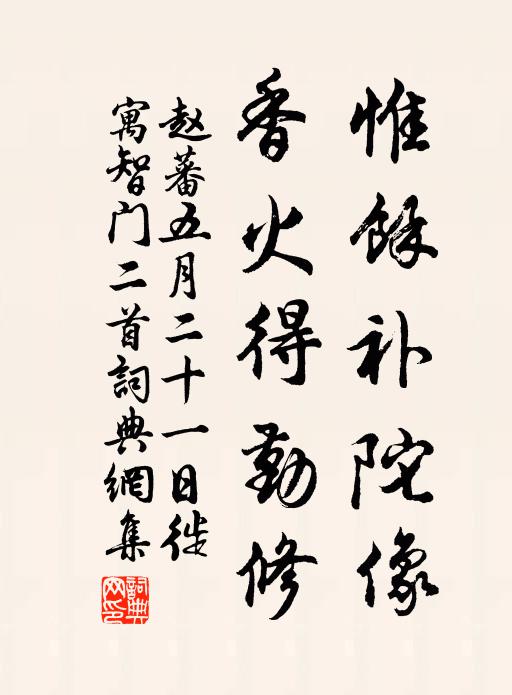 惟餘补陀像
香火得勤修
赵蕃五月二十一日徙
寓智门二首詞典網集
詞典网印